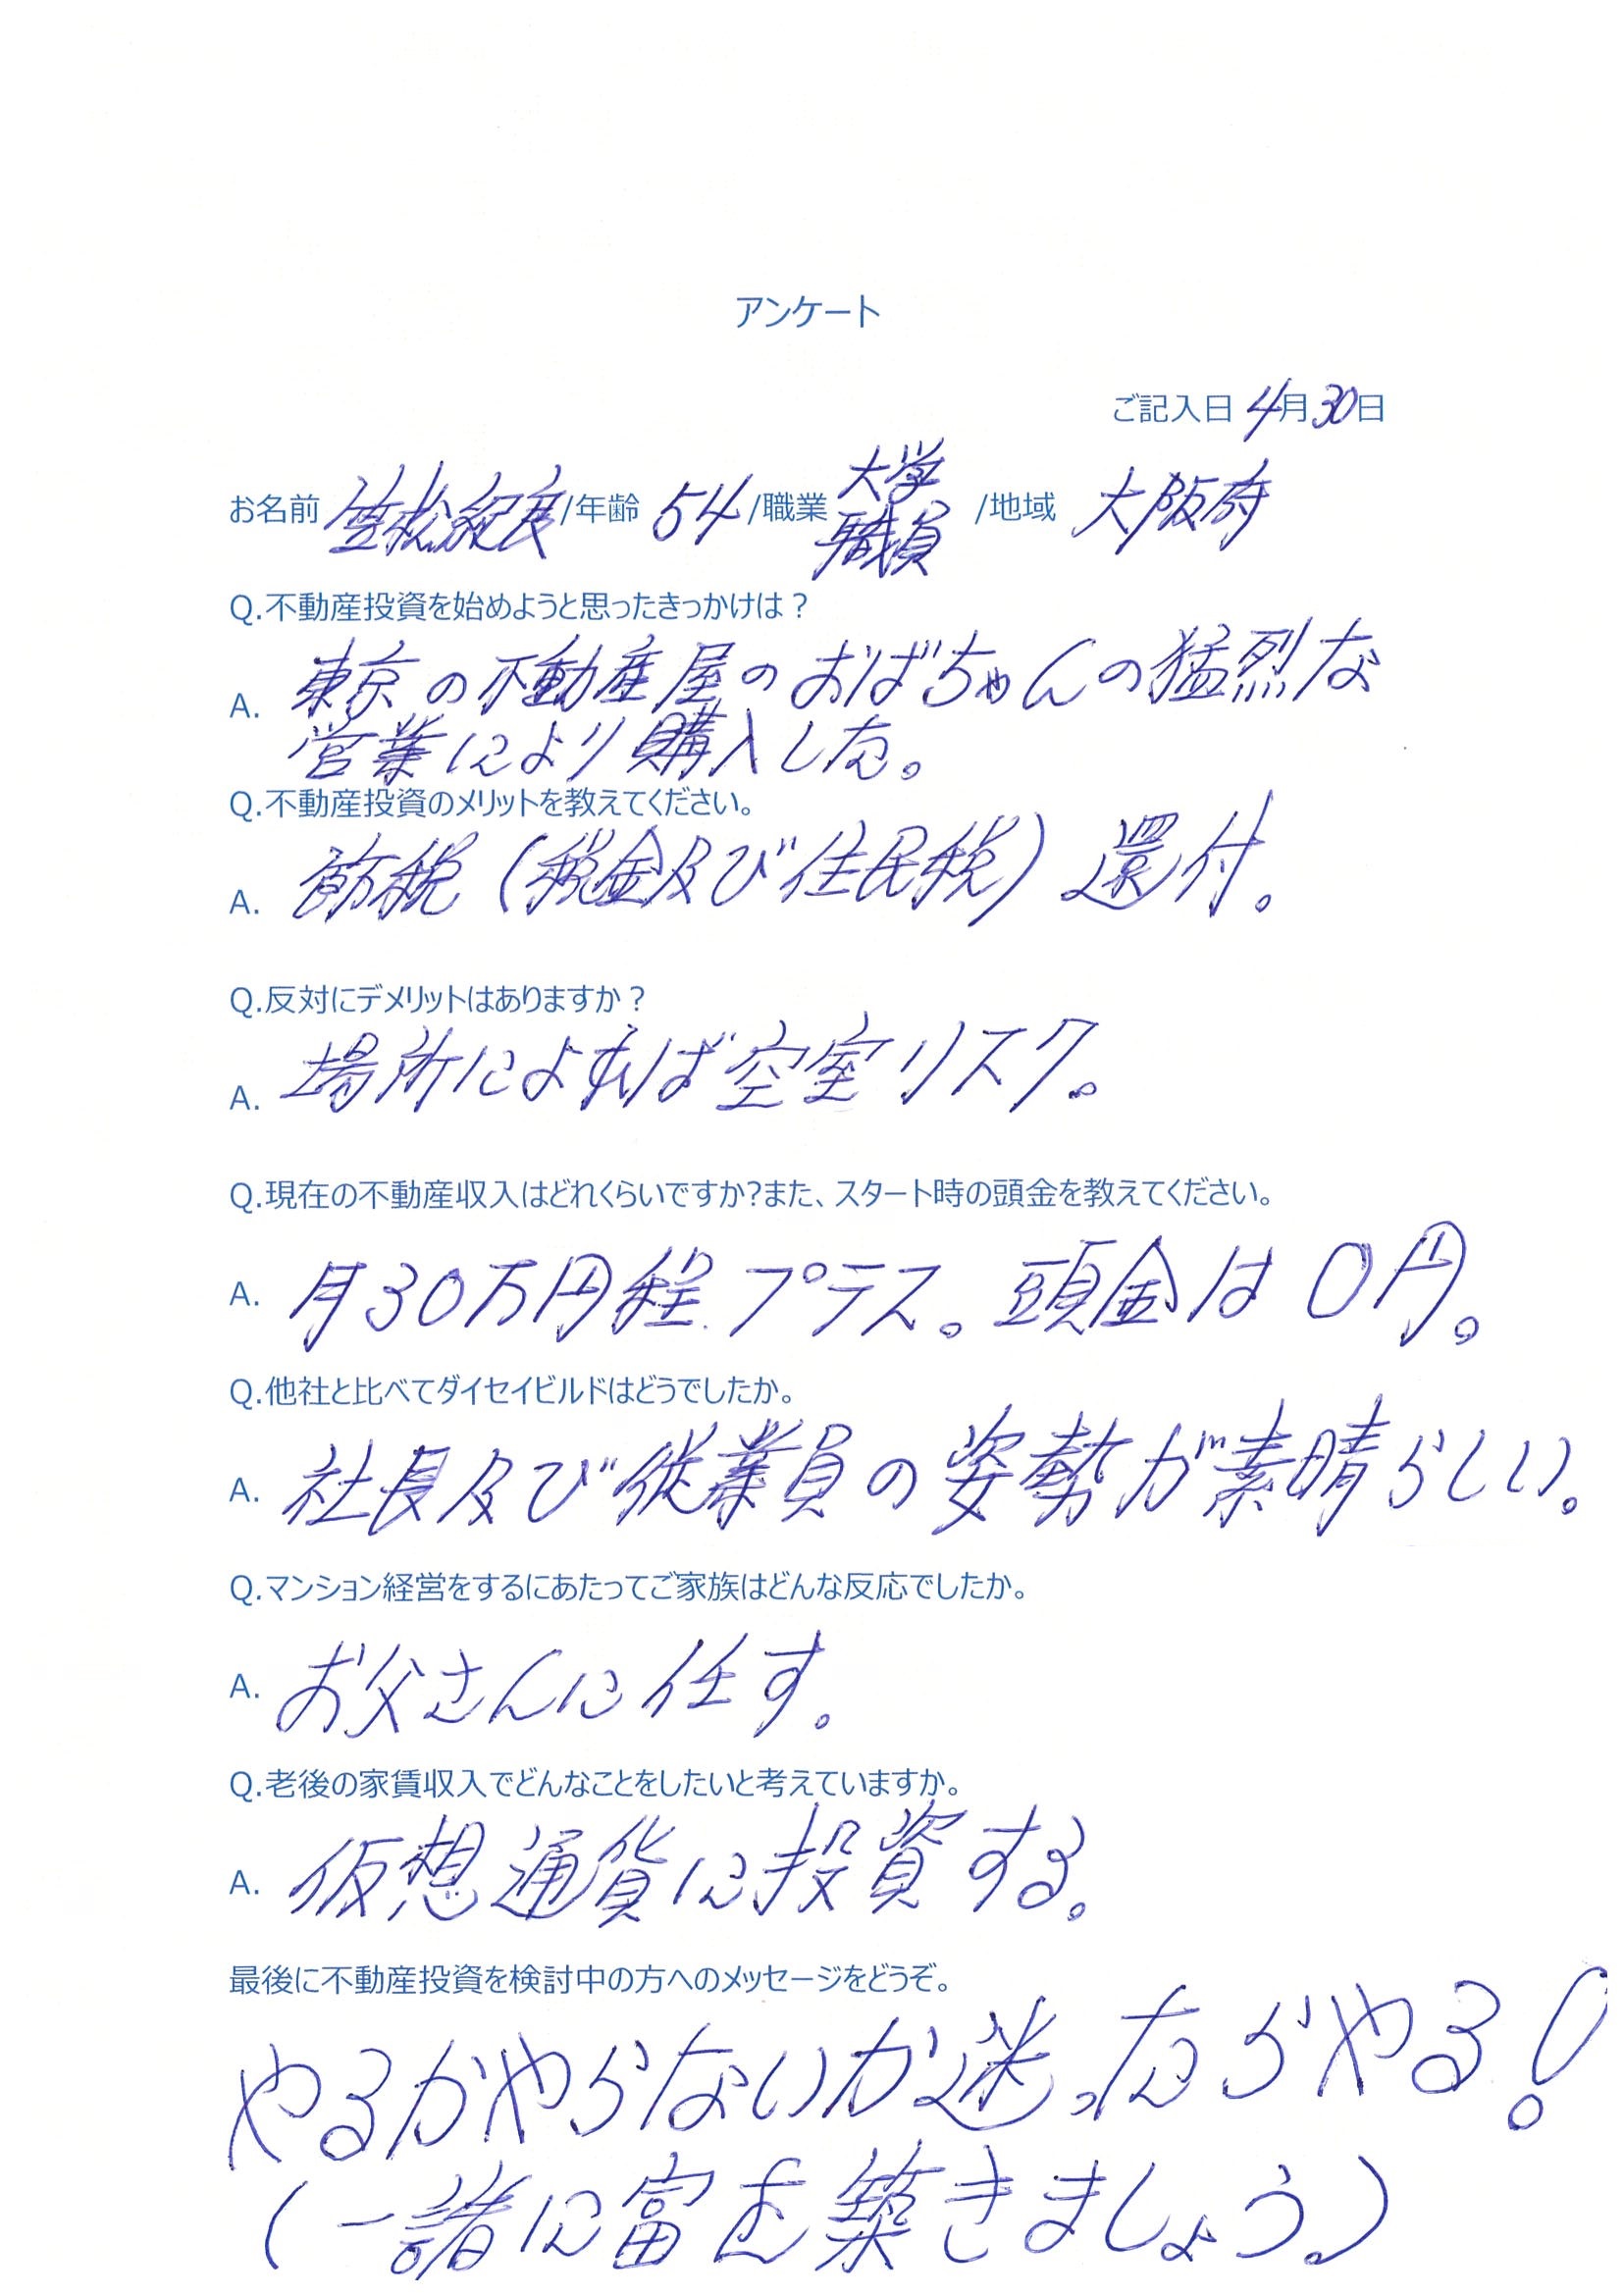 アンケート
ご記入日 4月30日
お名前 笠松紀良 /年齢 54 /職業 大学職員 /地域 大阪府
Q.不動産投資を始めようと思ったきっかけは？
A. 東京の不動産屋のおばちゃんの猛烈な
営業により購入した。
Q.不動産投資のメリットを教えてください。
A. 節税（税金及び住民税）還付。
Q.反対にデメリットはありますか？
A. 場所によれば空室リスク。
Q.現在の不動産収入はどれくらいですか?また、スタート時の頭金を教えてください。
A. 月30万円程プラス。頭金は0円。
Q.他社と比べてダイセイビルドはどうでしたか。
A. 社長及び従業員の姿勢が素晴らしい。
Q.マンション経営をするにあたってご家族はどんな反応でしたか。
A. お父さんに任す。
Q.老後の家賃収入でどんなことをしたいと考えていますか。
A. 仮想通貨に投資する。
最後に不動産投資を検討中の方へのメッセージをどうぞ。
やるかやらないか迷ったらやる！
（一諸に富を築きましょう。）